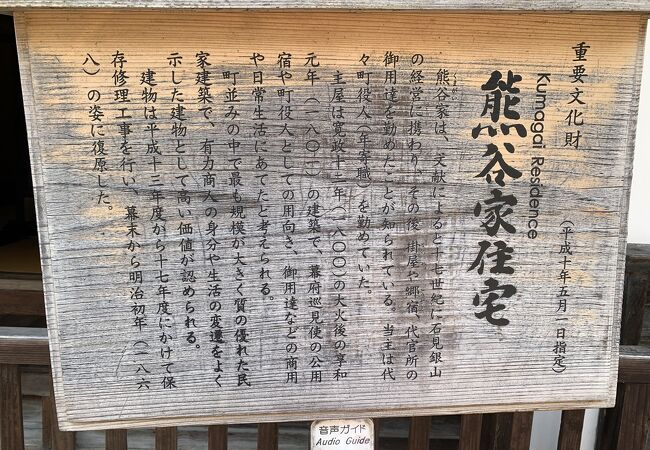 重要文化財
(平成十年五月一日指定)
熊谷家住宅
Kumagai Residence
くまがい
熊谷家は、文献によると十七世紀に石見銀山
の経営に携わり、その後、掛屋や郷宿、代官所の
御用達を勤めたことが知られている。当主は代
々町役人(年寄職)を勤めていた。
主屋は寛政十二年(一八〇〇)の大火後の享和
元年(一八〇一)の建築で、幕府巡見使の公用
宿や町役人としての用向き、御用達などの商用
や日常生活にあてたと考えられる。
町並みの中で最も規模が大きく質の優れた民
家建築で、有力商人の身分や生活の変遷をよく
示した建物として高い価値が認められる。
建物は平成十三年度から十七年度にかけて保
存修理工事を行い、幕末から明治初年(一八六
八)の姿に復原した。
音声ガイド
Audio Guide